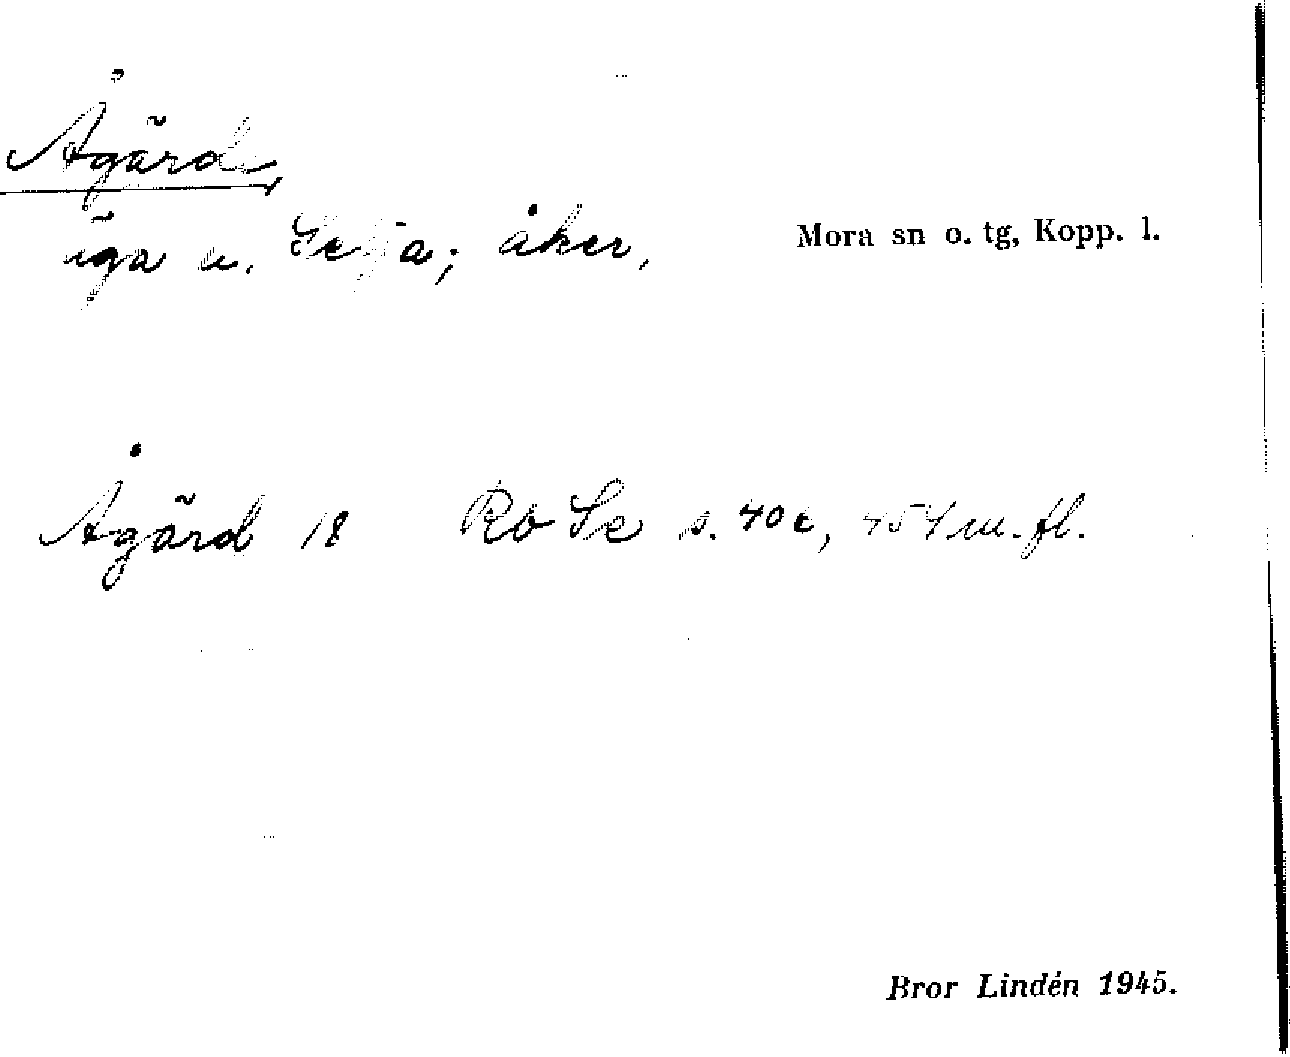 Ågärde,
äga u. Selja; åker,
Mora sn o. tg, Kopp. l.
Ågärd 18 Ro Se s. 40c, 454 m. fl.
Bror Lindén 1945.